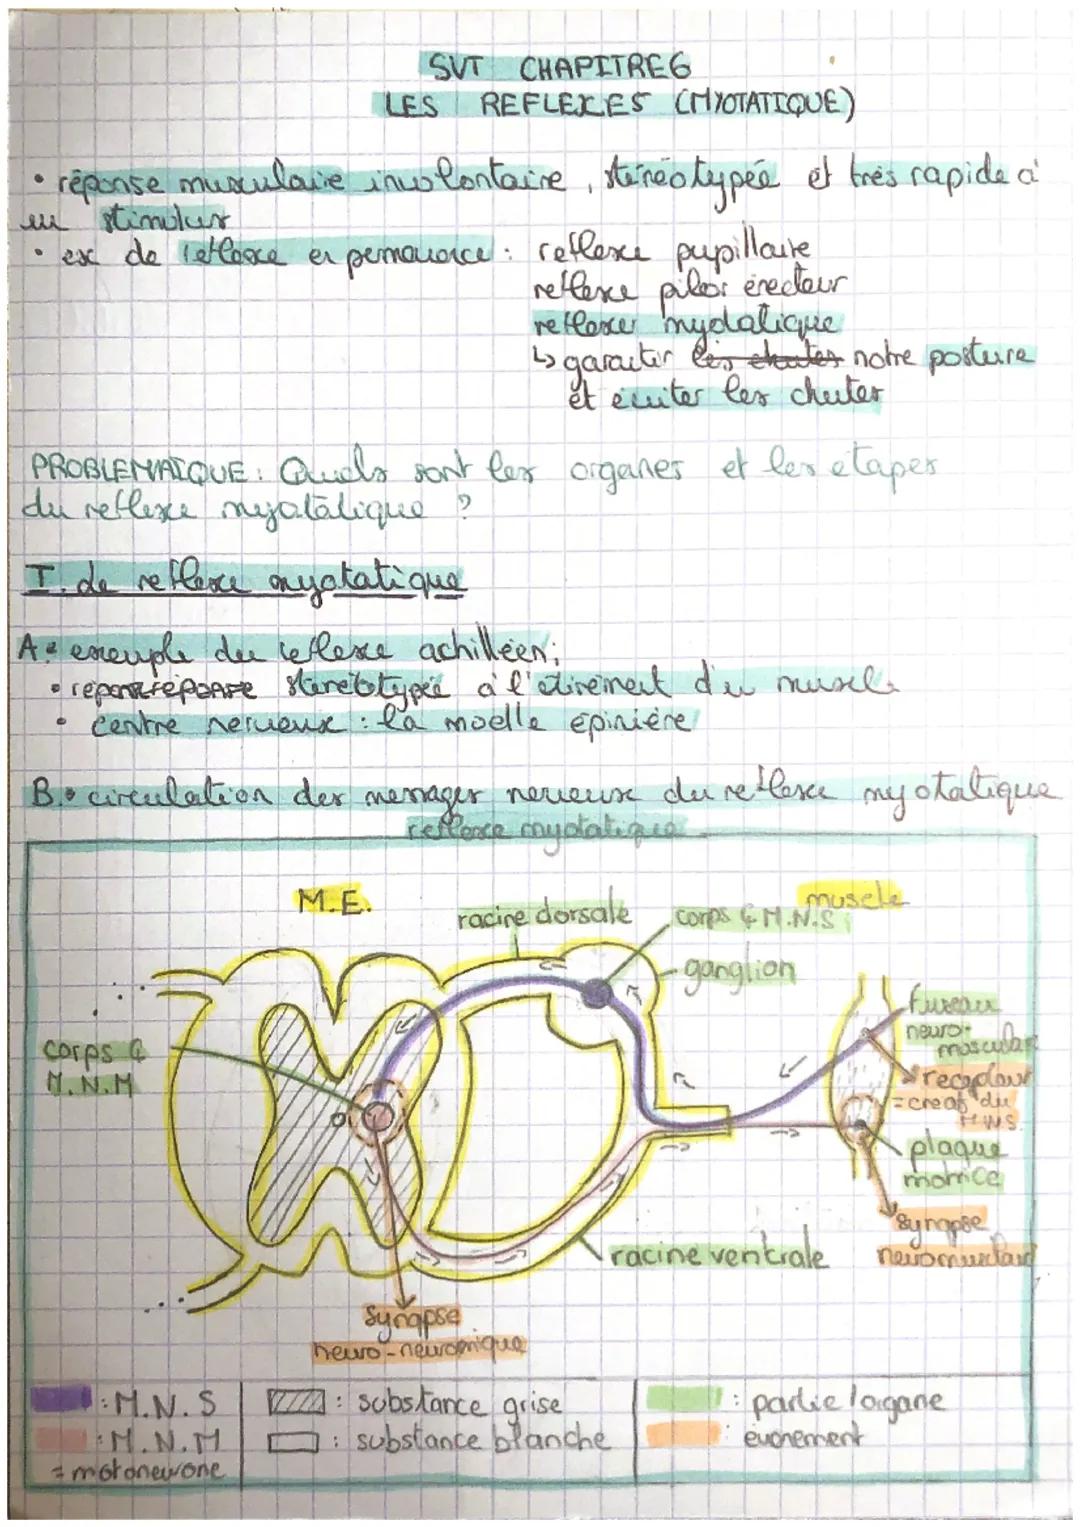 SVT CHAPITRE 6
LES REFLEXES (MYOTATIQUE)
• réponse musculaire involontaire, stéréotypée et très rapide à
un stimulus
• ex de reflexe en permanence : reflexe pupillaire
reflexe pilor érecteur
reflexe myotatique
↳ garantir les chutes notre posture
et éviter les chutes
PROBLEMATIQUE : Quels sont les organes et les étapes
du reflexe myotatique ?
I. de reflexe myotatique
A• exemple du reflexe achilléen;
• réponse stéréotypée à l'étirement d'un muscle
• centre nerveux : la moelle épinière
B.• circulation des messages nerveux du reflexe myotatique
reflexe myotatique
M.E.
muscle
racine dorsale
corps C M.N.S
ganglion
fuseau
neuro-
musculaire
corps C
M.N.M
recepteur
= creat du
M.N.S.
plaque
motrice
synapse
neuromusculaire
racine ventrale
synapse
neuro-neuronique
: M.N.S
: substance grise
: partie / organe
: M.N.M
: substance blanche
: evenement
= motoneurone